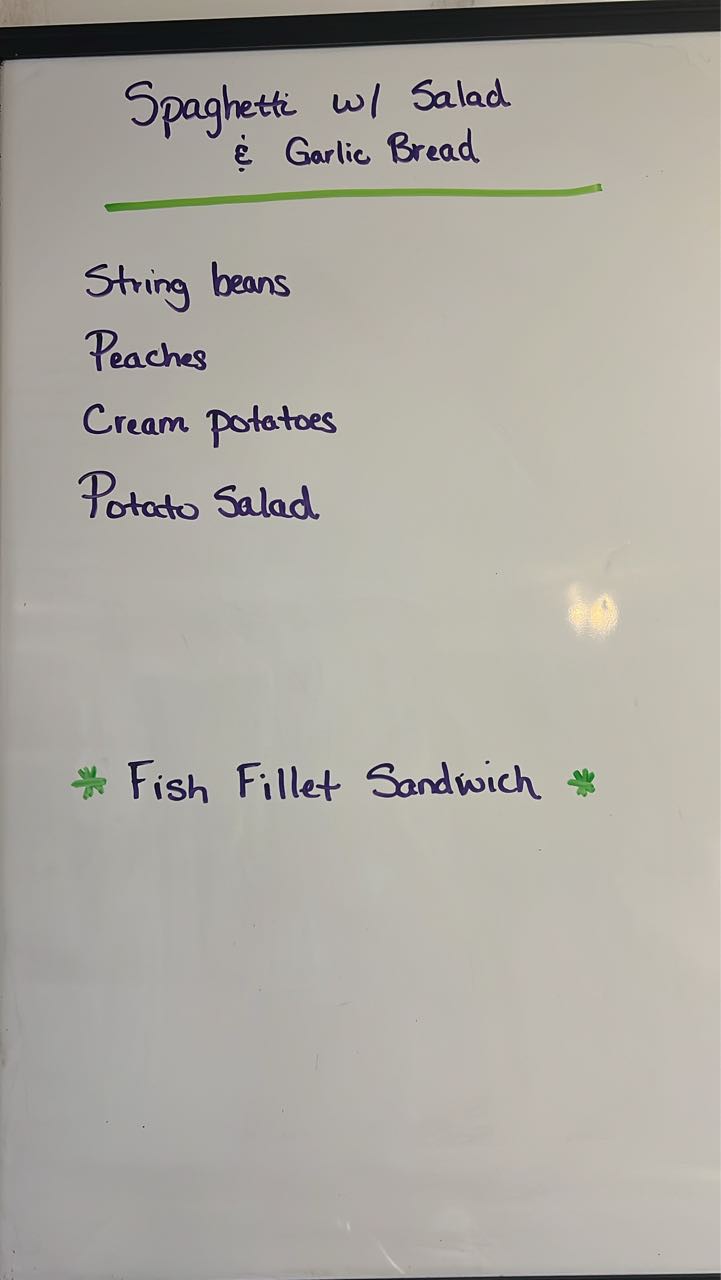 Spaghetti w/ Salad
& Garlic Bread
String beans
Peaches
Cream potatoes
Potato Salad
* Fish Fillet Sandwich *